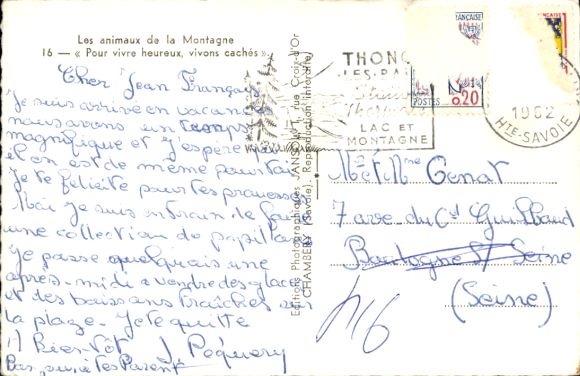 Les animaux de la Montagne
16 — « Pour vivre heureux, vivons cachés »
Cher Jean François
Je suis arrivé en vacances
nous avons un temps
magnifique et j'espère
et on est de même pour toi
Je te félicite pour tes prouesses
Moi je suis entrain de faire
une collection de papillons
Je passe quelques une
après-midi a vendre des glaces
et des boissons fraîches sur
la plage. Je te quitte
Bientôt J Péquery
Editions Photographiques JANSOL, 11, rue Croix-d'Or
CHAMBÉRY (Savoie). Reproduction interdite
THONON
LES-BAINS
LAC ET
MONTAGNE
POSTES 0,20
1962
HTE-SAVOIE
Mr et Mme Genat
7 ave du Ct Guilbaud
Boulogne S/ Seine
(Seine)
16